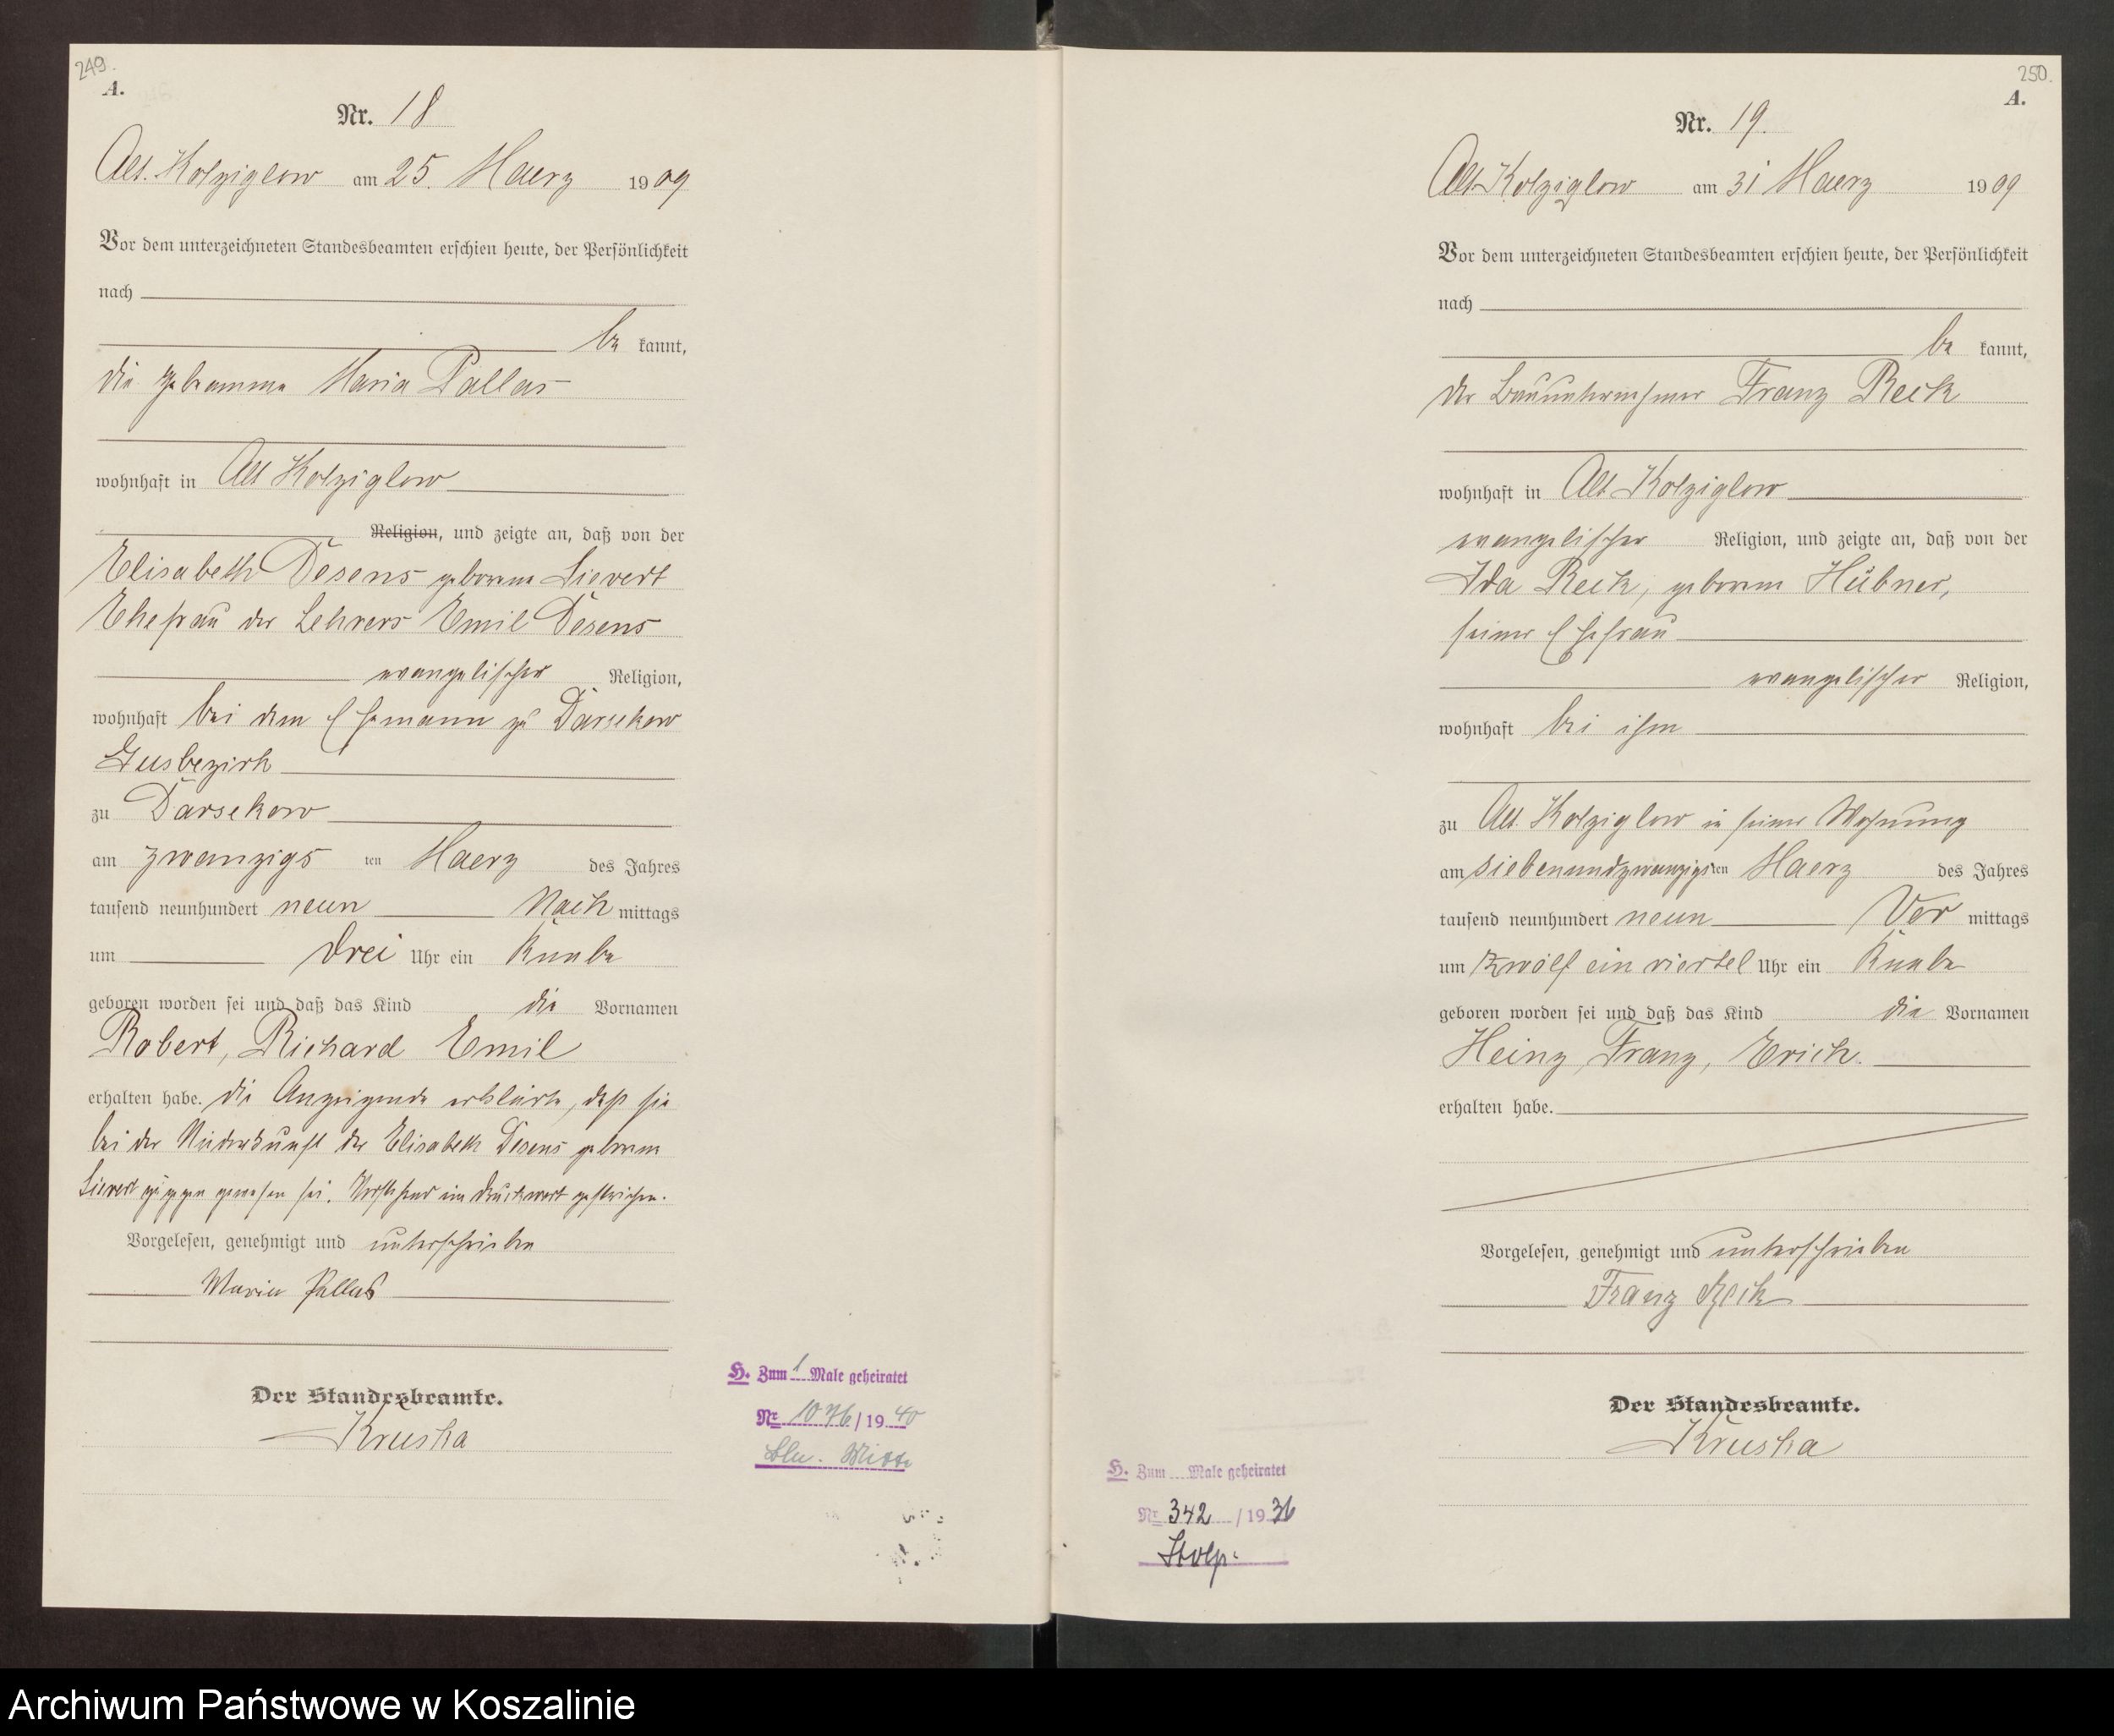 249.
A.
Nr. 18
Alt. Kolziglow am 25. Maerz 1909
Vor dem unterzeichneten Standesbeamten erschien heute, der Persönlichkeit
nach
be kannt,
die Hebamme Maria Pallas
wohnhaft in Alt Kolziglow
Religion, und zeigte an, daß von der
Elisabeth Desens geborene Sievert
Ehefrau des Lehrers Emil Desens
evangelischer Religion,
wohnhaft bei dem Ehemann zu Darsekow
Gutsbezirk
zu Darsekow
am zwanzigs ten Maerz des Jahres
tausend neunhundert neun Nach mittags
um drei Uhr ein Knabe
geboren worden sei und daß das Kind die Vornamen
Robert, Richard Emil
erhalten habe. Die Anzeigende erklärte, daß sie
bei der Niederkunft der Elisabeth Desens geborene
Sievert zugegen gewesen sei. Vorstehend ein Druckwort gestrichen.
Vorgelesen, genehmigt und unterschrieben
Maria Pallas
Der Standesbeamte.
Kruska
H. Zum 1 Male geheiratet
Nr 1076/1940
Bln. Mitte
250.
A.
Nr. 19.
Alt. Kolziglow am 31 Maerz 1909
Vor dem unterzeichneten Standesbeamten erschien heute, der Persönlichkeit
nach
be kannt,
der Bauunternehmer Franz Reck
wohnhaft in Alt. Kolziglow
evangelischer Religion, und zeigte an, daß von der
Ida Reck, geborene Hübner,
seiner Ehefrau
evangelischer Religion,
wohnhaft bei ihm
zu Alt. Kolziglow in seiner Wohnung
am siebenundzwanzigsten Maerz des Jahres
tausend neunhundert neun Vor mittags
um zwölf ein viertel Uhr ein Knabe
geboren worden sei und daß das Kind die Vornamen
Heinz, Franz, Erich.
erhalten habe.
Vorgelesen, genehmigt und unterschrieben
Franz Reck
Der Standesbeamte.
Kruska
H. Zum Male geheiratet
Nr 342 /1936
Stolp.
Archiwum Państwowe w Koszalinie